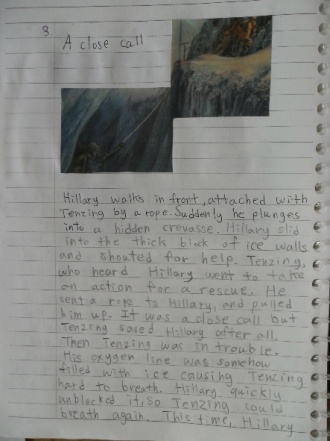 3
A close call
Hillary walks in front, attached with
Tenzing by a rope. Suddenly he plunges
into a hidden crevasse. Hillary slid
into the thick of ice walls
and shouted for help. Tenzing,
who heard Hillary went to take
an action for a rescue. He
sent a rope to Hillary, and pulled
him up. It was a close call but
Tenzing saved Hillary after all.
Then Tenzing was in trouble.
His oxygen line was somehow
filled with ice causing Tenzing
hard to breath. Hillary quickly
unblocked it, so Tenzing could
breath again. This time, Hillary